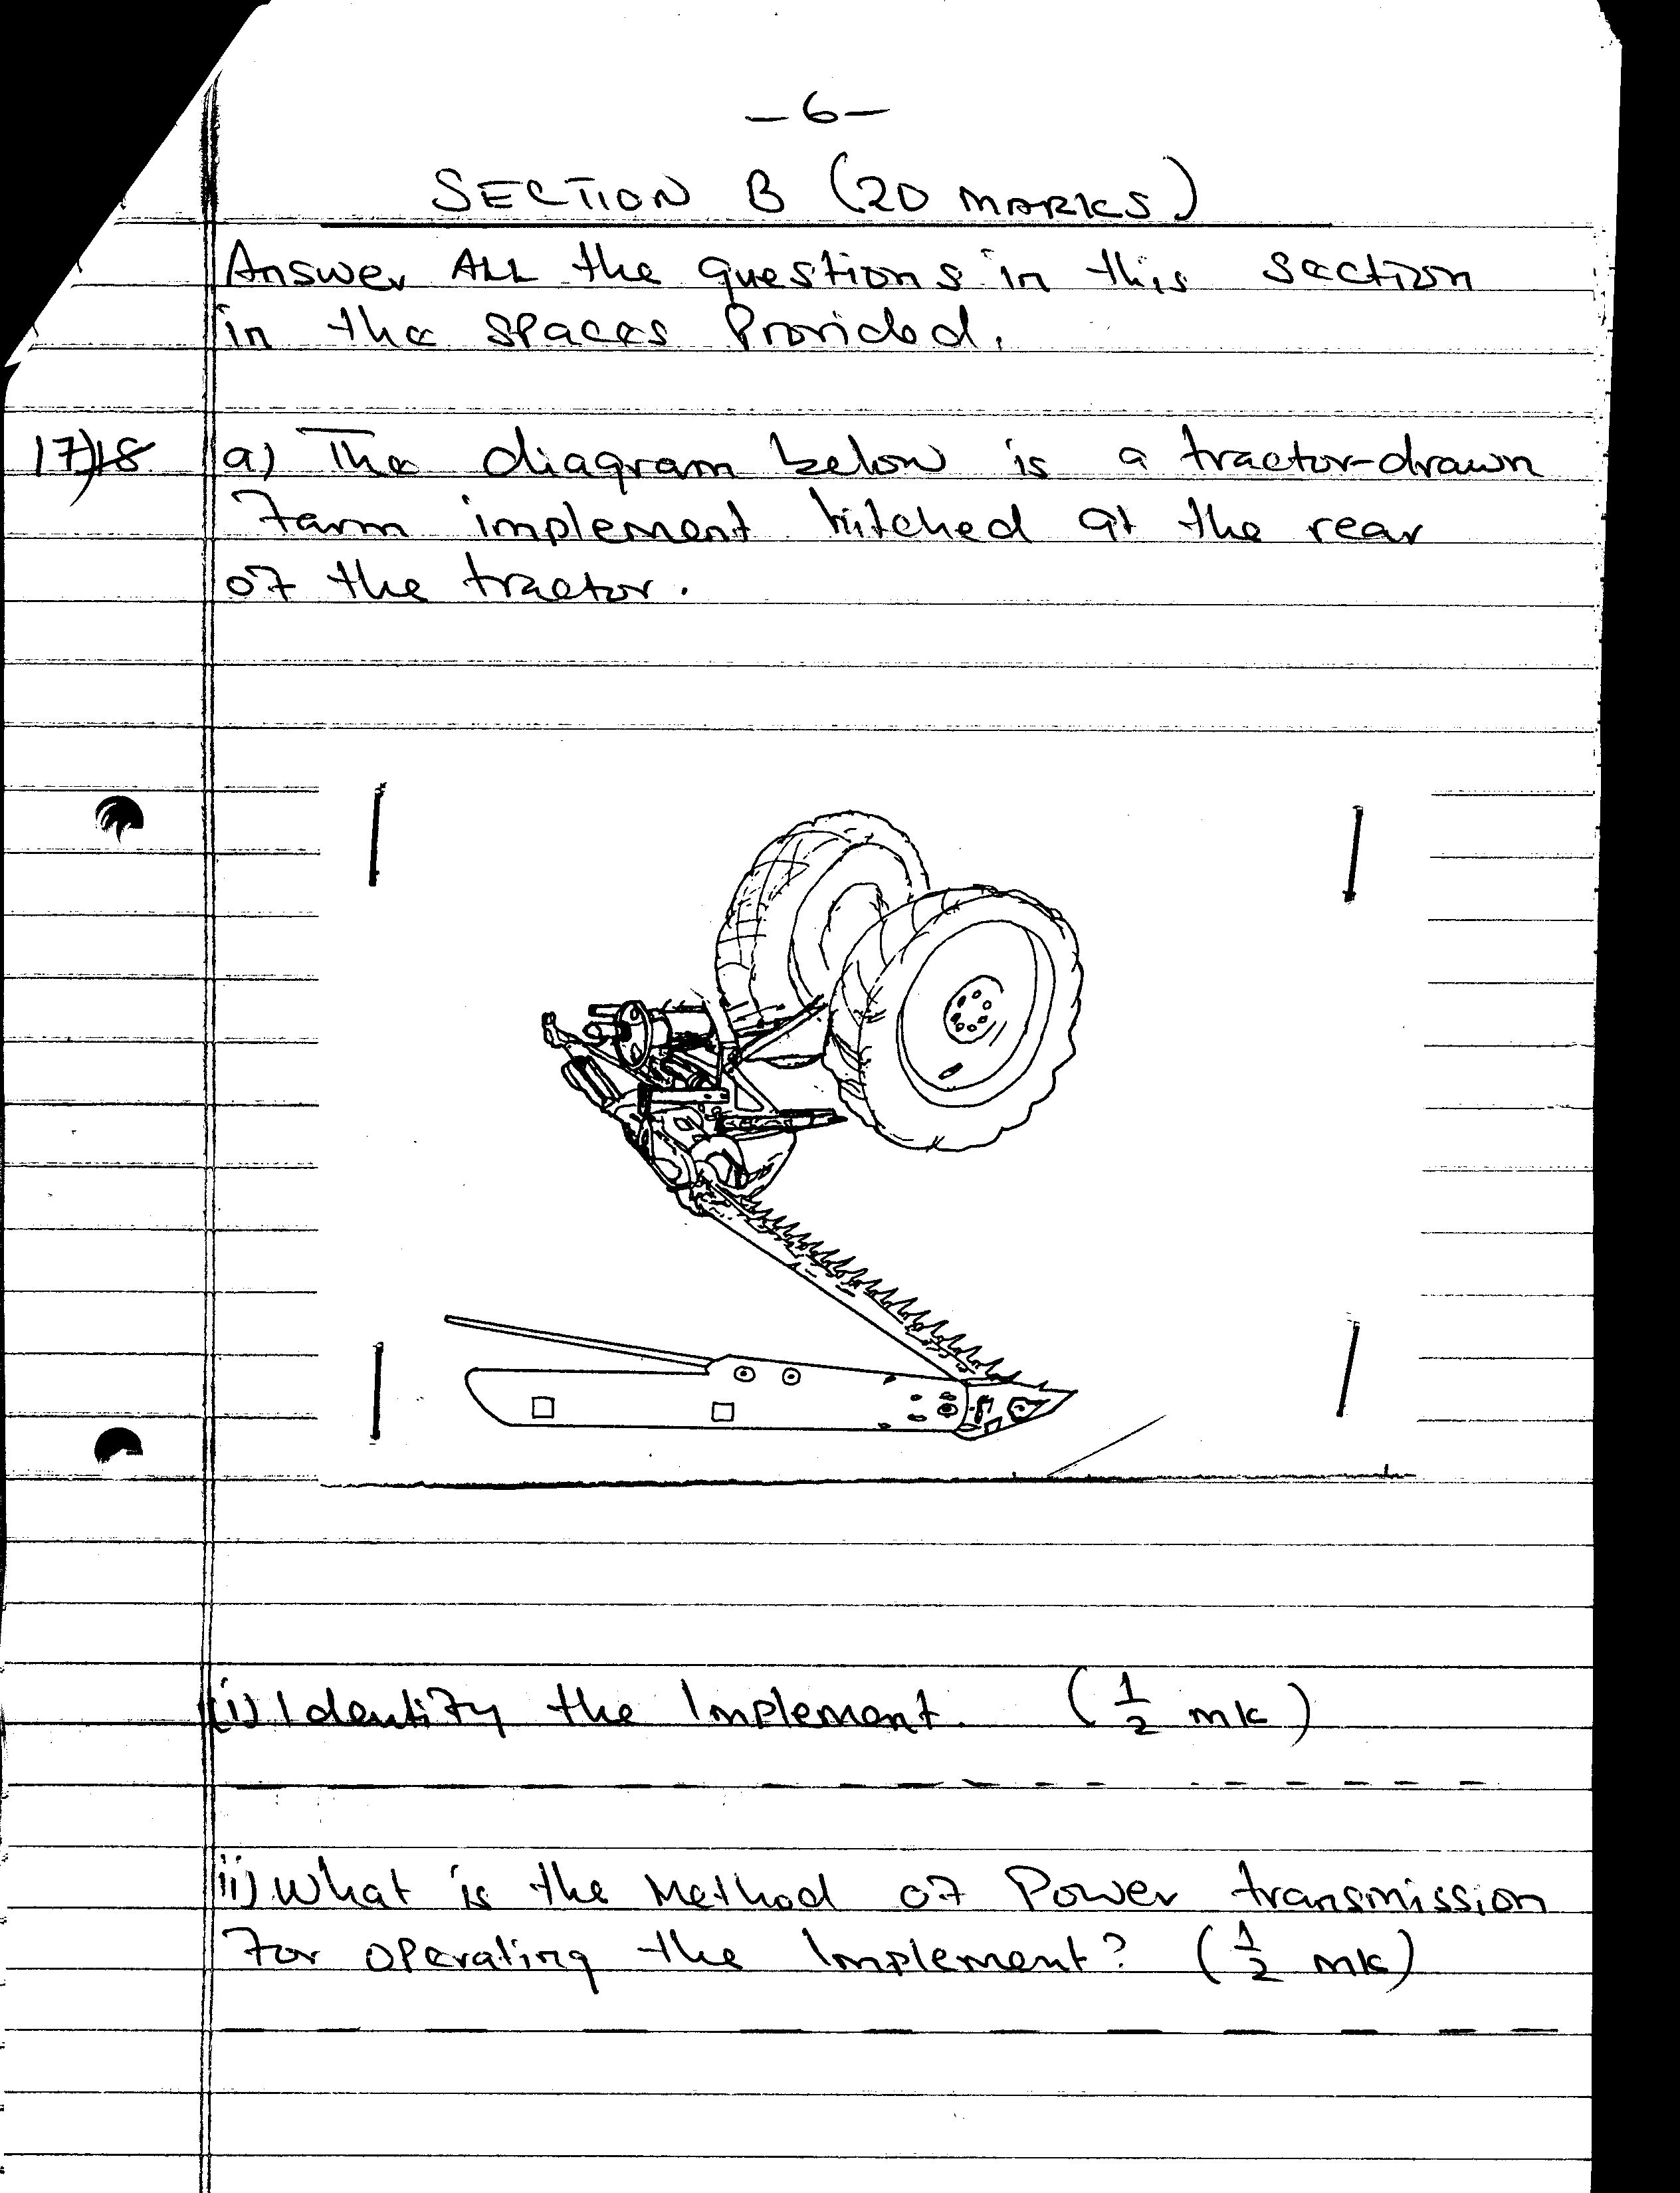 -6-
SECTION B (20 MARKS)
Answer ALL the questions in this section
in the spaces Provided.
17) 18 a) The diagram below is a tractor-drawn
farm implement hitched at the rear
of the tractor.
(i) Identify the Implement. (1/2 mk)
ii) What is the Method of Power transmission
for operating the Implement? (1/2 mk)